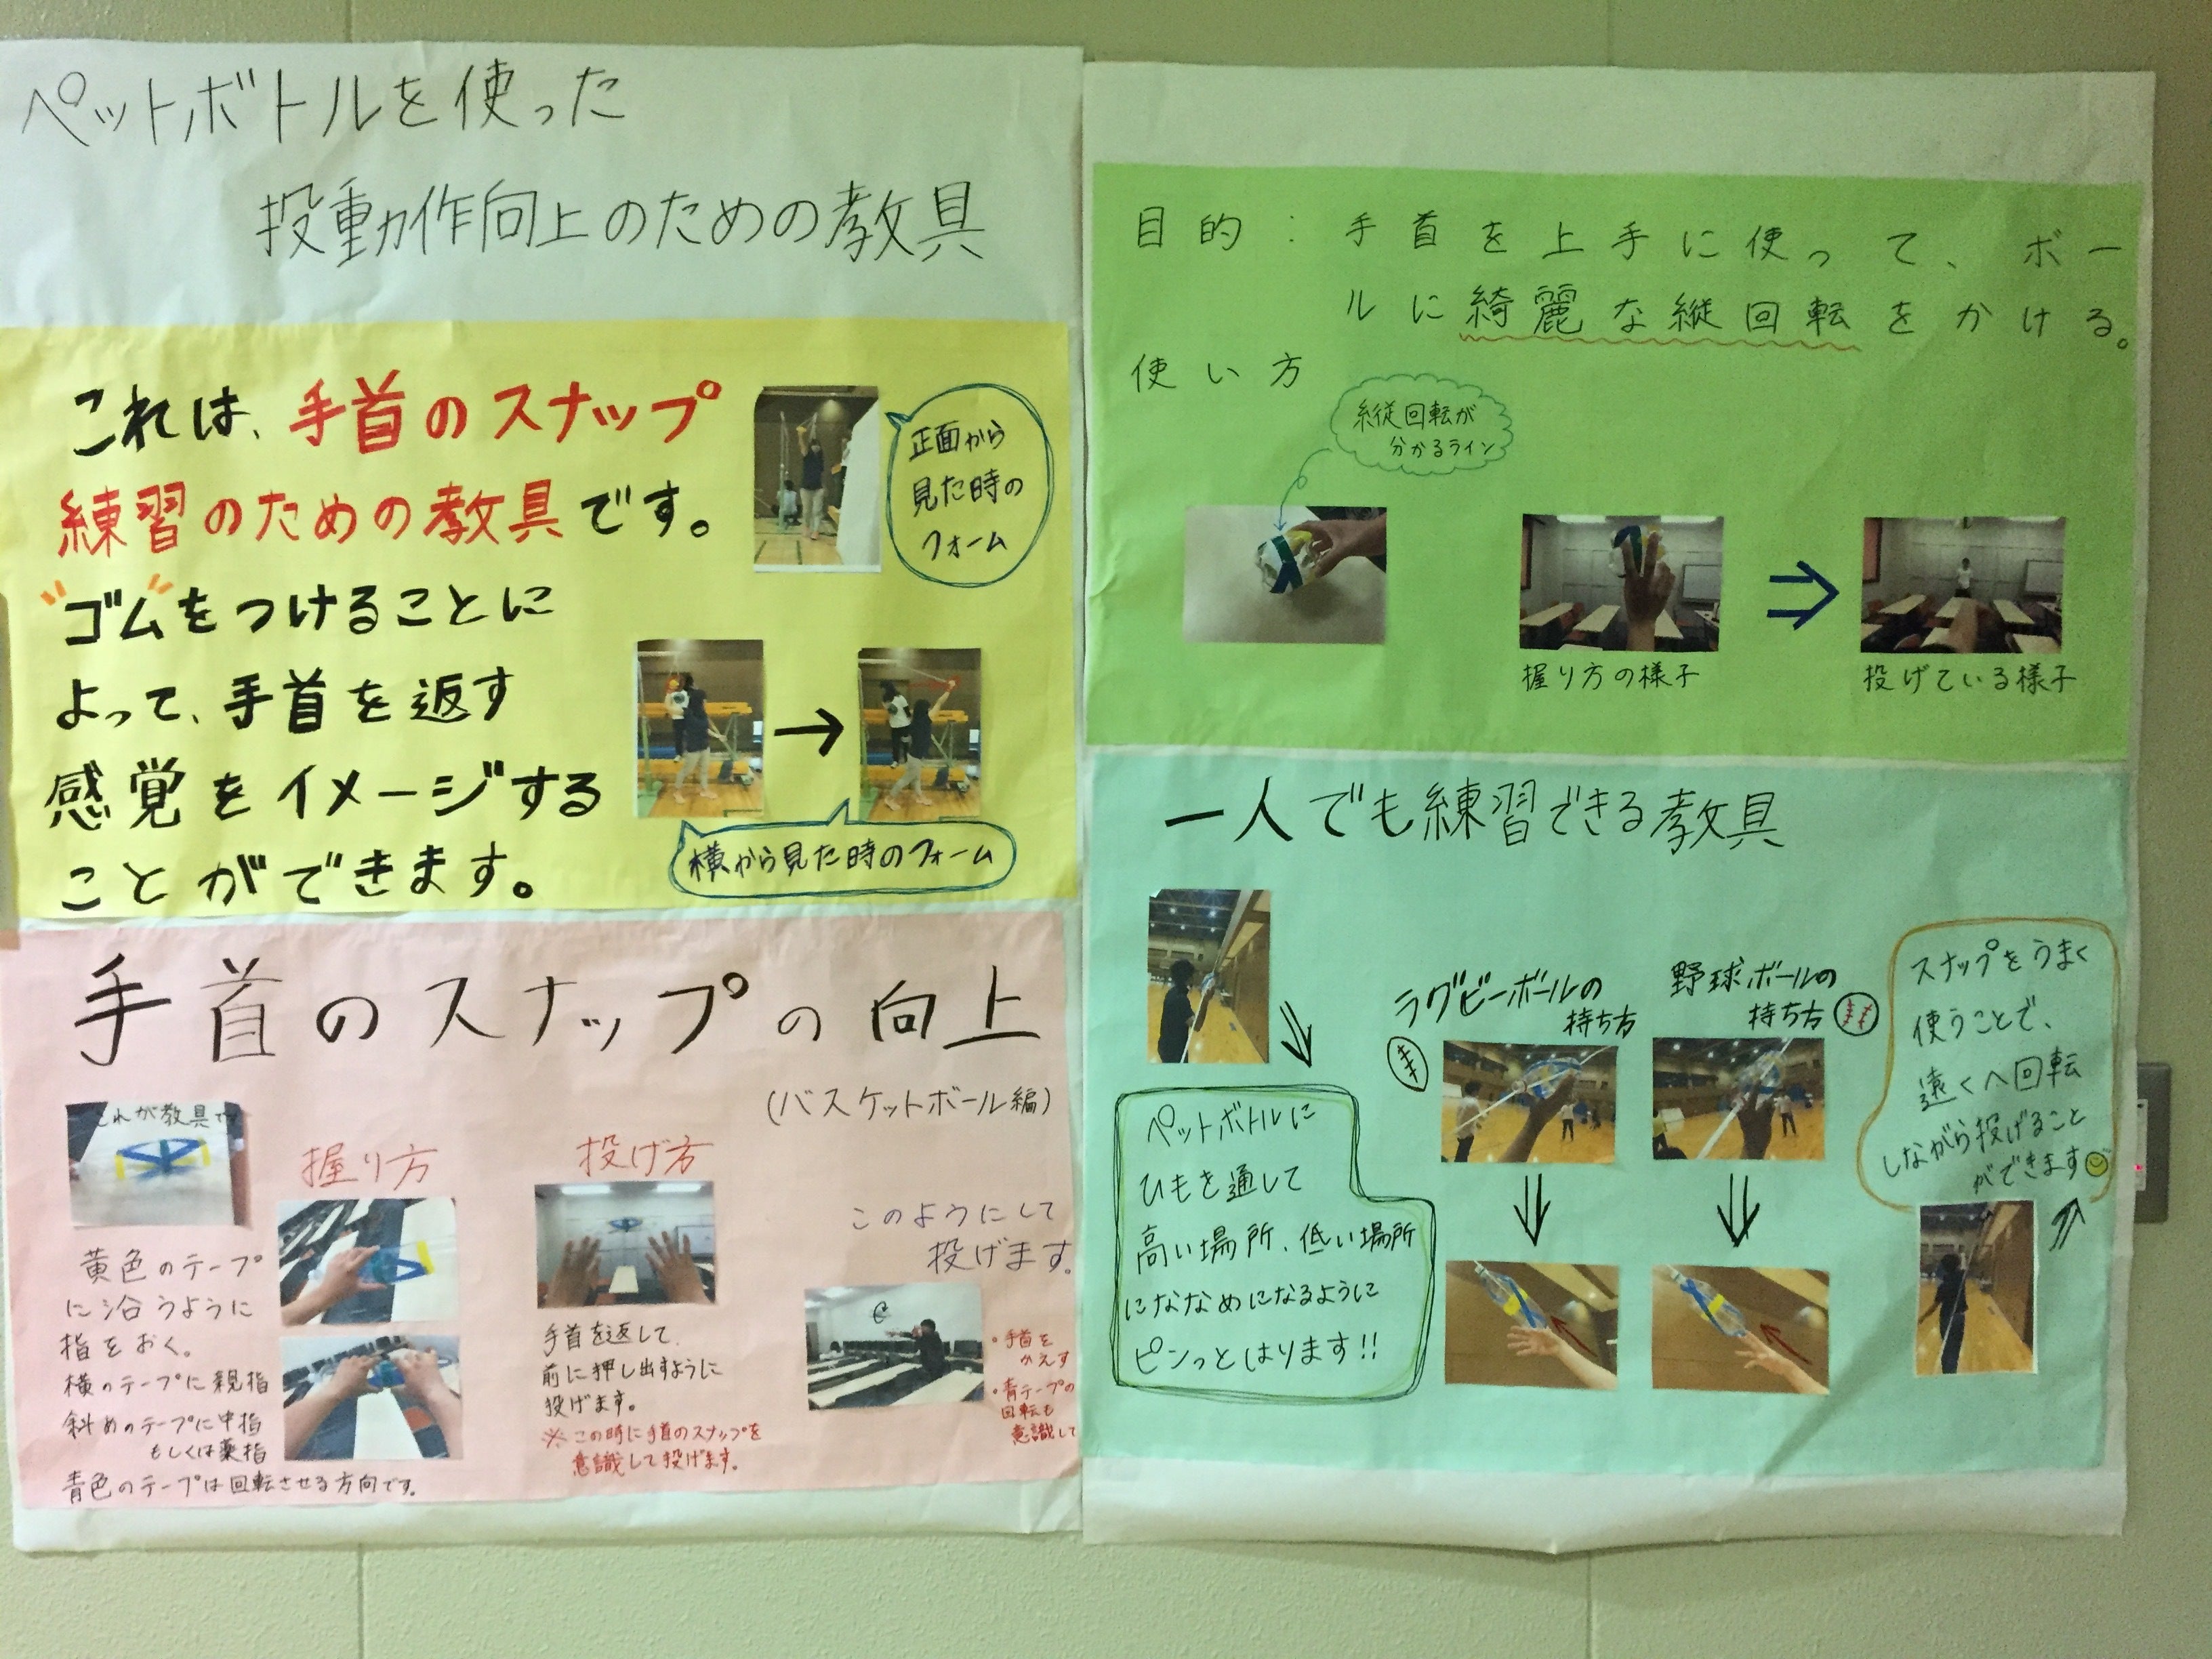 ペットボトルを使った
投動作向上のための教具
これは、手首のスナップ
練習のための教具です。
"ゴム"をつけることに
よって、手首を返す
感覚をイメージする
ことができます。
正面から
見た時の
フォーム
横から見た時のフォーム
手首のスナップの向上
(バスケットボール編)
これが教具で
黄色のテープ
に沿うように
指をおく。
横のテープに親指
斜めのテープに中指
もしくは薬指
青色のテープは回転させる方向です。
握り方
投げ方
手首を返して、
前に押し出すように
投げます。
※この時に手首のスナップを
意識して投げます。
このようにして
投げます。
・手首を
かえす
・青テープの
回転も
意識して
目的:手首を上手に使って、ボー
ルに綺麗な縦回転をかける。
使い方
縦回転が
分かるライン
握り方の様子
⇒
投げている様子
一人でも練習できる教具
ペットボトルに
ひもを通して
高い場所、低い場所
にななめになるように
ピンっとはります!!
ラグビーボールの
持ち方
野球ボールの
持ち方
スナップをうまく
使うことで、
遠くへ回転
しながら投げること
ができます